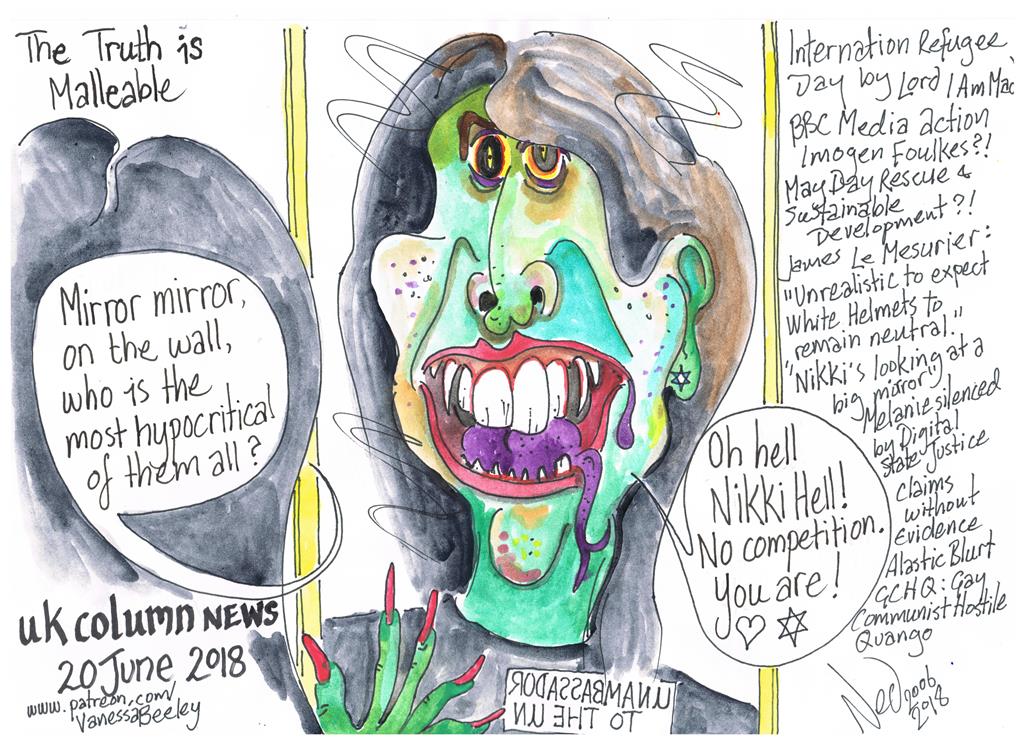 The Truth is
Malleable
Mirror mirror,
on the wall,
who is the
most hypocritical
of them all?
UK COLUMN NEWS
20 June 2018
www.patreon.com/
VanessaBeeley
U.N AMBASSADOR
TO THE UN
Oh hell
Nikki Hell!
No competition.
You are!
Internation Refugee
Day by Lord I Am Mac
BBC Media action
Imogen Foulkes?!
May Day Rescue &
Sustainable
Development?!
James Le Mesurier:
"Unrealistic to expect
White Helmets to
remain neutral."
"Nikki's looking at a
big mirror"
Melanie silenced
by Digital
State Justice
claims
without
Evidence
Alastic Blurt
GCHQ: Gay
Communist Hostile
Quango
2006
2018